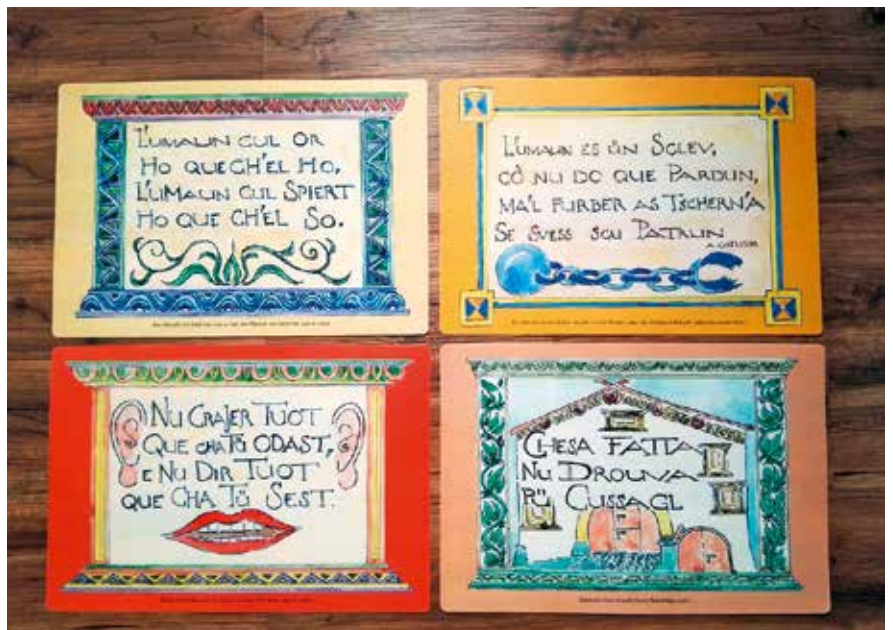 L'UMAUN CUL OR
HO QUE CH'EL HO,
L'UMAUN CUL SPIERT
HO QUE CH'EL SO.
L'UMAUN ES ÜN SCLEV,
CÒ NU DO QUE PARDUN,
MA'L FURBER AS TSCHERN'A
SE SVESS SCU PATRUN
NU CRAJER TUOT
QUE CHA TÜ ODAST,
E NU DIR TUOT
QUE CHA TÜ SEST.
CHESA FATTA
NU DROUVA
PÜ CUSSAGL